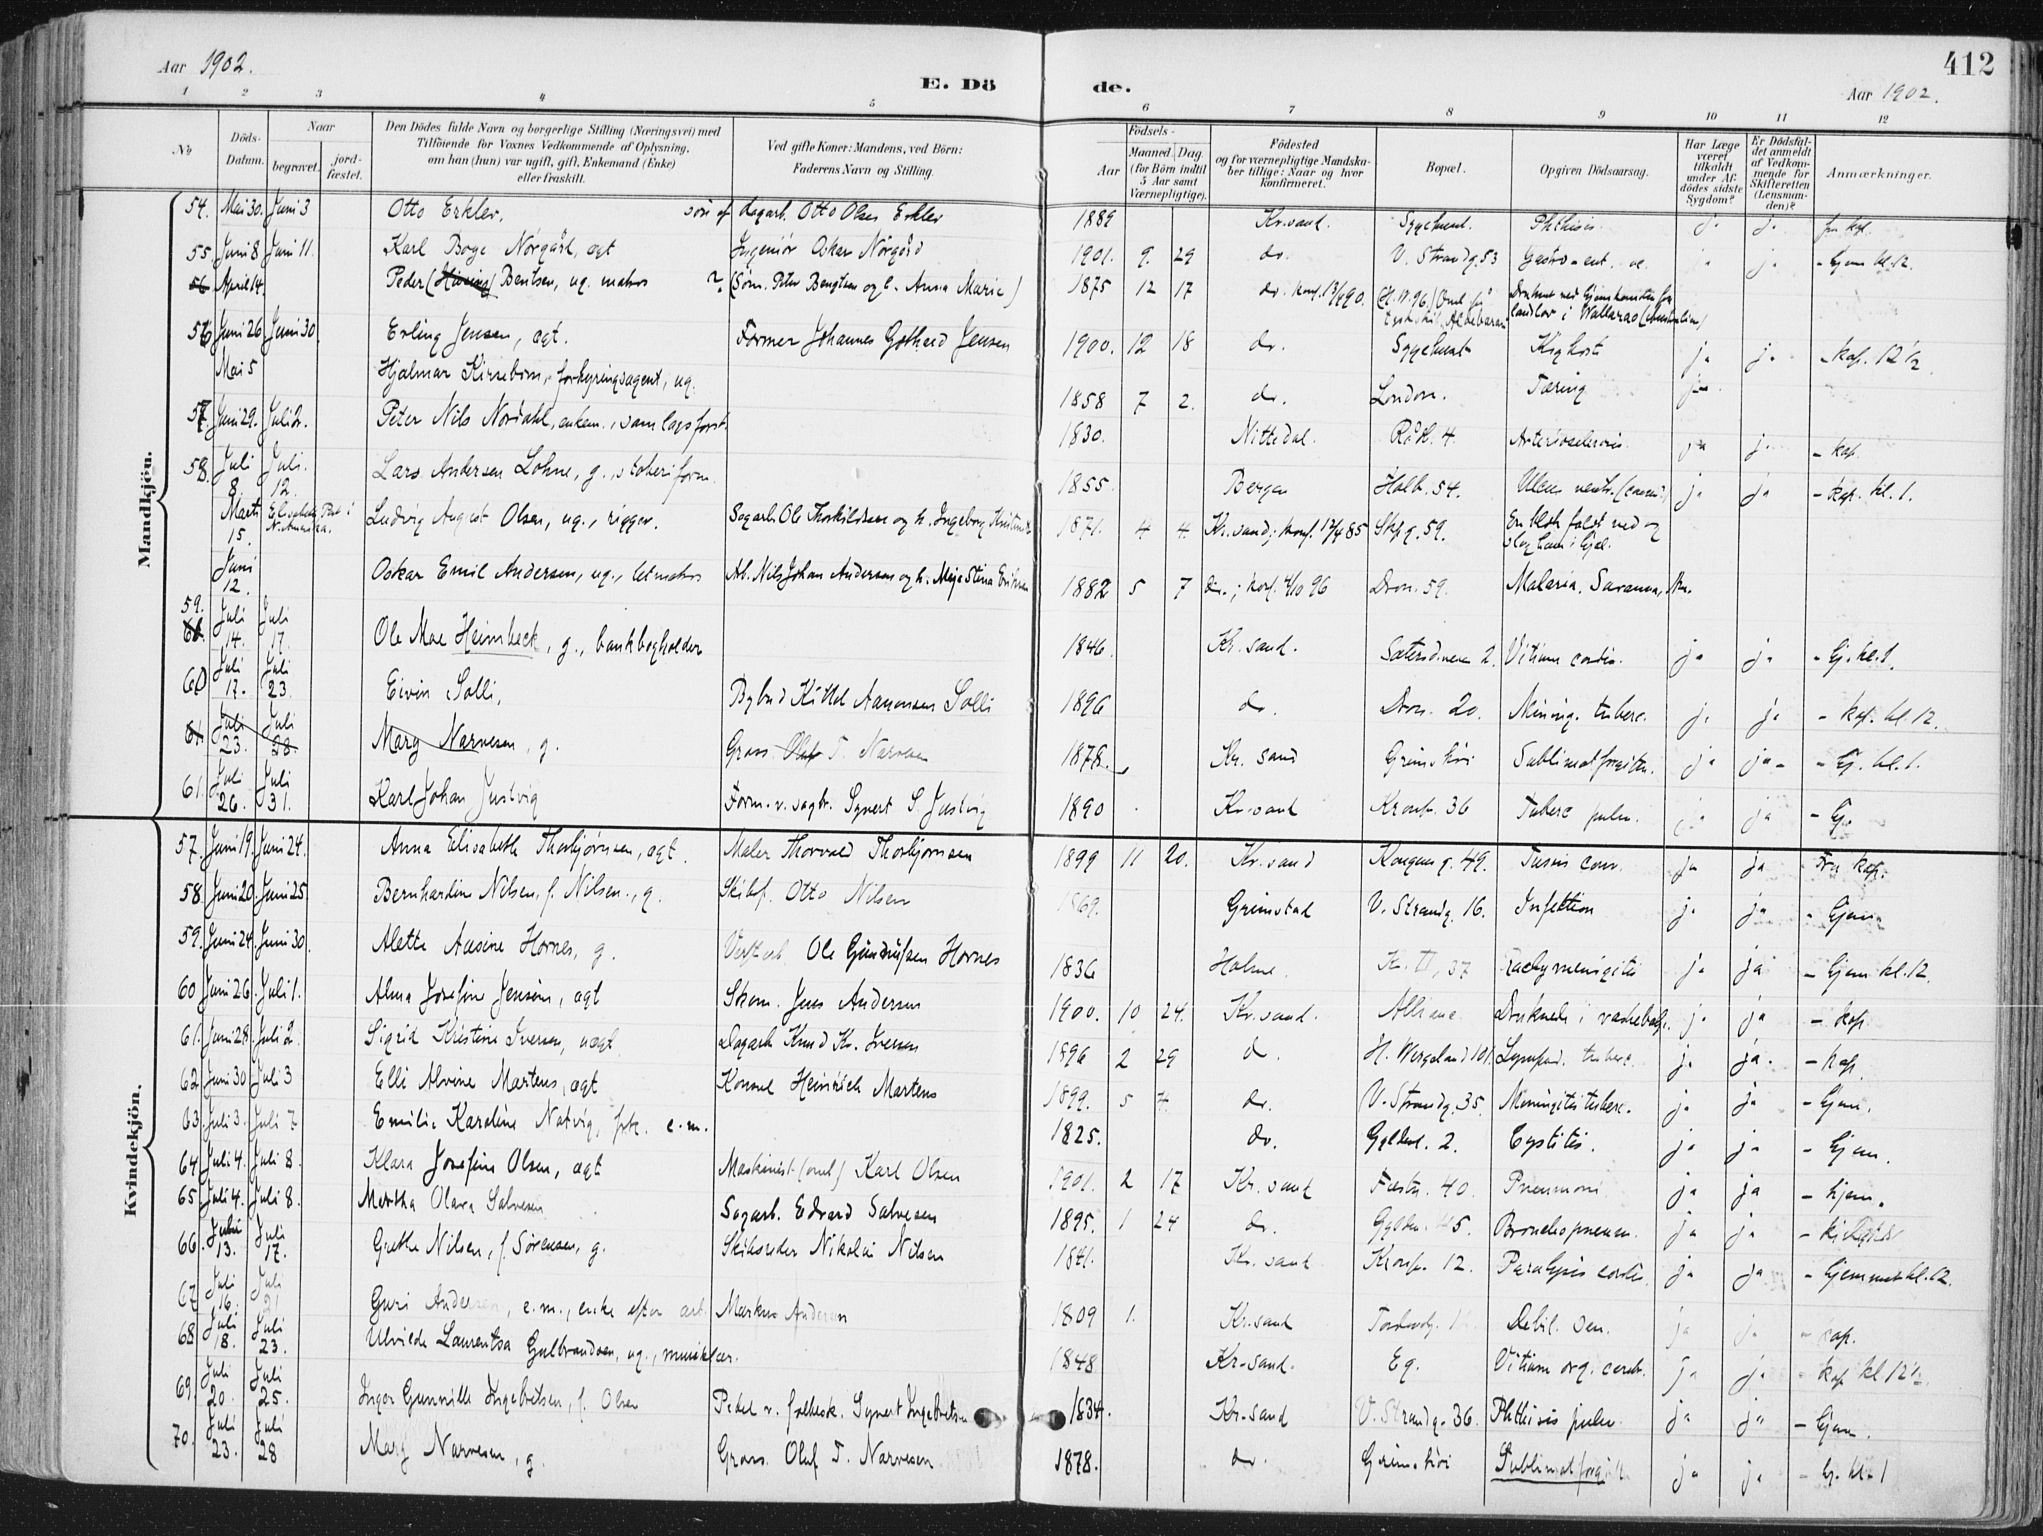 Aar 1902.
E. Dö
de.
412
Aar 1902.
1 2 3 4 5 6 7 8 9 10 11 12
No
Döds-Datum.
Naar
begravet.
jord-fæstet.
Den Dödes fulde Navn og borgerlige Stilling (Næringsvei) med
Tilföiende for Voxnes Vedkommende af Oplysning,
om han (hun) var ugift, gift, Enkemand (Enke)
eller fraskilt.
Ved gifte Koner: Mandens, ved Börn:
Faderens Navn og Stilling.
Födsels-
Aar
Maaned. Dag.
(for Börn indtil
5 Aar samt
Værnepligtige).
Födested
og for værnepligtige Mandska-
ber tillige: Naar og hvor
konfirmeret.
Bopæl.
Opgiven Dödsaarsag.
Har Læge
været
tilkaldt
under Af-
dödes sidste
Sygdom?
Er Dödsfal-
det anmeldt
af Vedkom-
mende for
Skifteretten
(Lensman-
den)?
Anmærkninger.
Mandkjön.
54. Mai 30. Juni 3 Otto Erklev, søn af dagarb. Otto Olsen Erklev 1889 Kr.sand. Sygehuset. Phthisis. ja ja
55. Juni 8 Juni 11. Karl Boye Nørgård, ægt Ingeniør Oskar Nørgård 1901. 9. 29 do. V. Strandg. 53 Gastro-ent. ja - Hjem kl. 12.
56 April 14. Peder (Høvring) Bentsen, ug. matros (Søn. Peter Bengtsen og h. Anna Marie) 1875 12 17 do.
56 Juni 26 Juni 30 Erling Jensen, ægt. Former Johannes Gothard Jensen 1900. 12 18 do. Sygehuset Kighoste ja ja - kap. 12 1/2
Mai 5 Hjalmar Kirrebom, forhyringsagent, ug. 1858 7 2. do. London. Tæring ja
57. Juni 29. Juli 2. Peter Nils Nordahl, enkem., samlagsforst. 1830. Nittedal. Rådh. 4. Arteriosclerosis. ja ja - kap.
58. Juli 8. Juli 12. Lars Andersen Lohne, g., støberiform. 1855. Bergen Holb. 54. Ulcus ventr. ja ja - kap. kl. 1.
Marts 15. Elisabeth Port i N. Amerika. Ludvig August Olsen, ug., rigger. Sagarb. Ole Thorkildsen og h. Ingeborg Kristine 1871. 4 4. Kr.sand; konf. 12/4 85 Skpg. 59. En blok faldt ned og slog ham ihjel.
Juni 12. Oskar Emil Andersen, ug., letmatros Ab. Nils Johan Andersen og h. Maja Stina Eriksen 1882 5 7 do.; konf. 4/10 96 Dron. 59. Malaria.
59. Juli 14. Juli 17. Ole Moe Heimbeck, g., bankbogholder 1846. Kr.sand. Sætersd.veien 2. Vitium cordis. ja ja - Hj. kl. 1.
60 Juli 17. Juli 23. Eivin Solli, Bybud Kittel Aanonsen Solli 1896 do. Dron. 20. Mening. tuberc. ja ja - kap. kl. 12.
61. Juli 23. Juli 28. Mary Narvesen, g. Gross. Oluf T. Narvesen 1878. Kr. sand Grimskøi Sublimatforgiftn. ja ja - Hj. kl. 1.
61. Juli 26. Juli 31. Karl Johan Justvig Form. v. sagbr. Synert S. Justvig 1890 Kr.sand Kronp. 36 Tuberc pulm. ja ja - Hj.
Kvindekjön.
57. Juni 19. Juni 24. Anna Elisabeth Thorbjørnsen, ægt. Maler Thorvald Thorbjørnsen 1899 11 20. Kr. sand Kongensg. 49. Tussis conv. ja ja - Fru kap.
58. Juni 20. Juni 25. Bernhardin Nilsen, f. Nilsen, g. Skibsf. Otto Nilsen 1869. Grimstad V. Strandg. 16. Infektion ja ja - Hjem
59. Juni 24. Juni 30. Alette Aasine Hornes, g. Ole Gundersen Hornes 1836 Holme. 37 Pachymeningitis ja ja - Hjem kl. 12
60 Juni 26. Juli 1. Alma Josefine Jensen, ægt Skom. Jens Andersen 1900. 10 24. Kr.sand. Druknede i ja ja - kap
61. Juni 28. Juli 2. Sigrid Kristine Iversen, uægt. Dagarb Knud Kr. Iversen 1896 2 29 do. H. Wergeland 101. Lymfad. tuberc. ja ja - kap.
62 Juni 30 Juli 3 Elli Alvine Martens, ægt Konsul Heinrich Martens 1899. 5 7. do. V. Strandg. 35. Meningitis tuberc. ja ja - Hjem.
63. Juli 3. Juli 7 Emilie Karoline Natvig, frk. e.m. 1825. do. Gyldenl. 2. Cystitis. ja ja - Hjem.
64 Juli 4. Juli 8. Klara Josefine Olsen, ægt Maskinist Karl Olsen 1901. 2 17 Kr. sand Fæstn. 40. Pneumoni ja ja - hjem.
65. Juli 4. Juli 8. Martha Olava Salvesen Sagarb. Edvard Salvesen 1895. 1 24 do. Gylden. 45. Bronchopneum. ja ja
66. Juli 13. Juli 17. Grethe Nilsen, f. Sørensen, g. Skibsreder Nikolai Nilsen 1841. Kr. sand Kronp. 12. Paralysis cordis. ja ja - Hjemmet kl. 12.
67 Juli 16. Juli 21 Guri Andersen, e.m., enke efter arb. Markus Andersen 1809 1. Kr.sand Debil. sen. ja ja - kap.
68 Juli 18. Juli 23. Ulvilde Laurentsa Gulbrandsen, ug., musiklær. 1848 Kr-sand. Eg. Vitium org. cerebr. ja ja - kap kl 12 1/2.
69. Juli 20. Juli 25. Inger Gunnille Ingebretsen, f. Olsen Pedel v. folkesk. Synert Ingebretsen 1834. Kr-sand V. Strandg. 36. Phthisis pulm ja ja - Hjem.
70. Juli 23. Juli 28 Mary Narvesen, g. Gross. Oluf T. Narvesen 1878. do. Grimskøi Sublimatforgiftn. ja ja - Hj. kl. 1